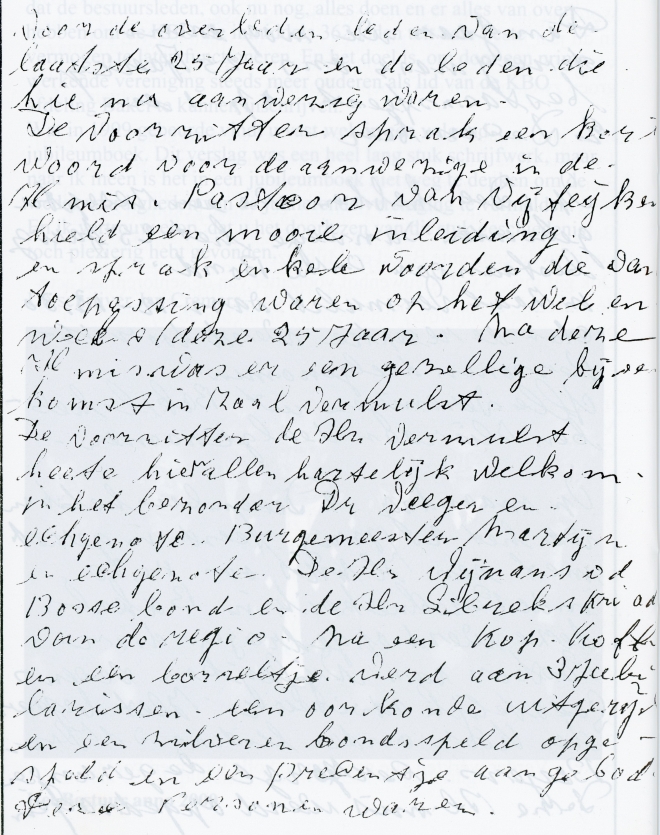 Voor de overleden leden van de
laatste 25 Jaar en de leden die
hie nu aanwezig waren.
De Voorzitter sprak een kort
Woord voor de aanwezige in de
H mis. Pastoor van Vijfeijken
hield een mooie inleiding
en sprak enkele woorden die van
toepassing waren op het wel en
wee deze 25 Jaar. Na deze
H mis was er een gezellige bije
komst in Zaal Vermulst.
De Voorzitter de Hr Vermulst
heete hier allen hartelijk Welkom.
in het bezonder Dr Veeger en
echgenote. Burgemeester Martijn
en echgenote. De Hr Wijnans vd
Bosse bond en de Hr
van de regio. Na een Kop Koffie
en een borreltje. werd aan 3 Jubi
larissen een oorkonde uitgerijkt
en een zilveren bondsspeld opge
speld en een presentje aangebod.
Deze Personen waren.